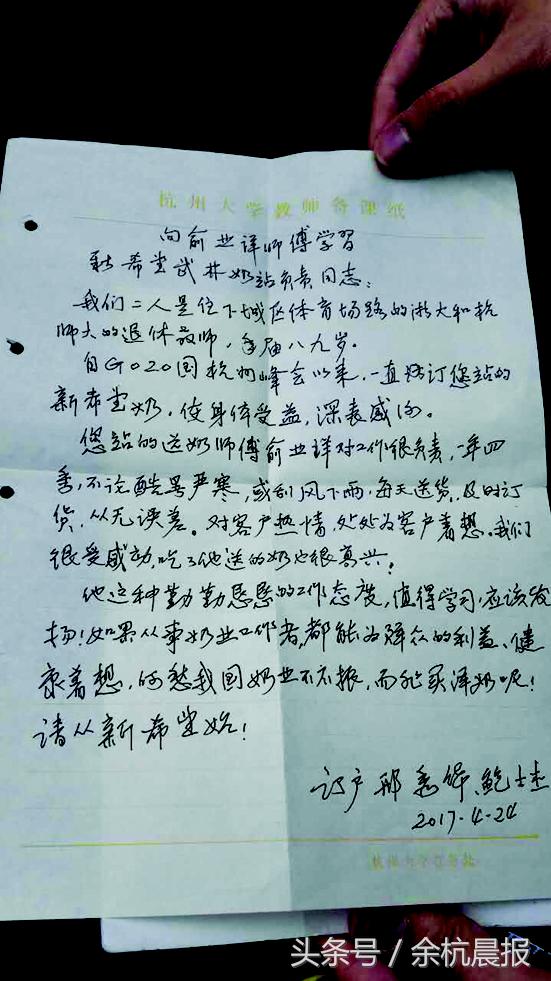 杭州大学教师备课纸
向俞业详师傅学习
新希望武林奶站负责同志:
我们二人是住下城区体育场路的浙大和杭
师大的退休教师,年届八九岁。
自G020国杭州峰会以来,一直续订您站的
新希望奶,使身体受益,深表感谢。
您站的送奶师傅俞业详对工作很负责,一年四
季,不论酷暑严寒,或刮风下雨,每天送货,及时订
货,从无误差。对客户热情,处处为客户着想。我们
很受感动,吃了他送的奶也很高兴!
他这种勤勤恳恳的工作态度,值得学习,应该发
扬!如果从事奶业工作者,都能为群众的利益、健
康着想,何愁我国奶业不振,而外买洋奶呢!
请从新希望始!
订户 邢 鲍士杰
2017.4-24
头条号/余杭晨报